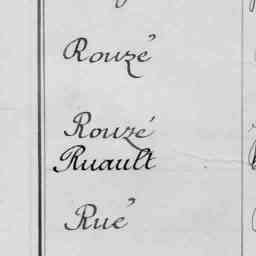 Rouzé
Rouzé
Ruault
Rué